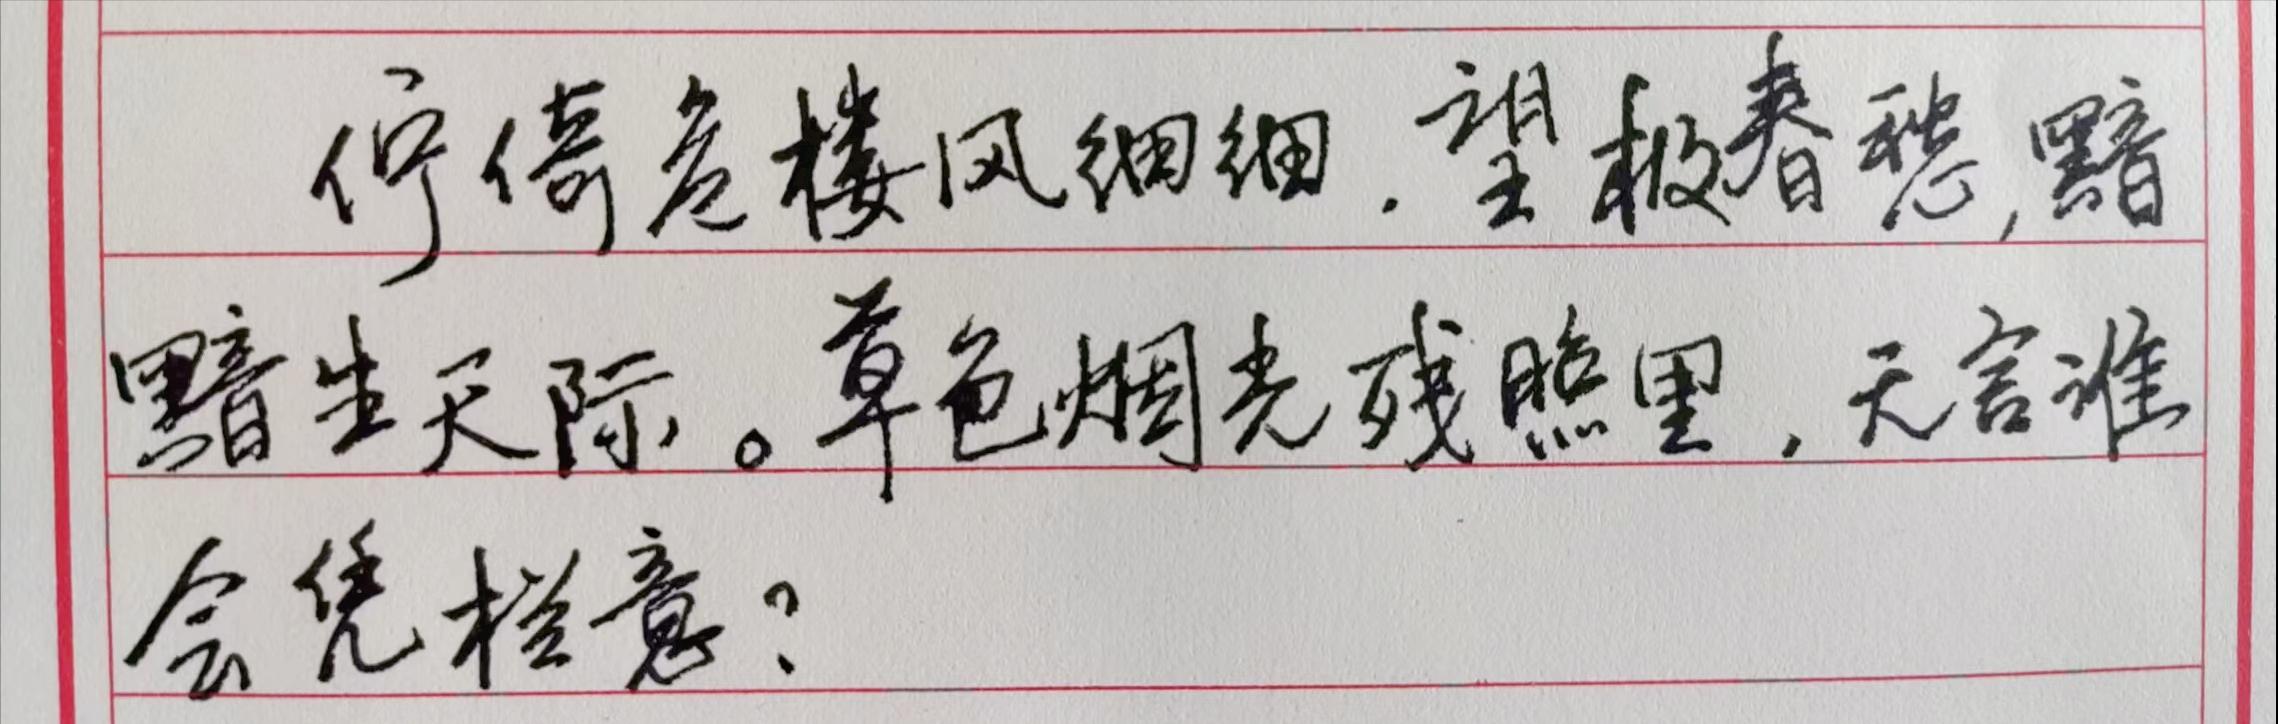 伫倚危楼风细细，望极春愁，黯
黯生天际。草色烟光残照里，无言谁
会凭栏意？